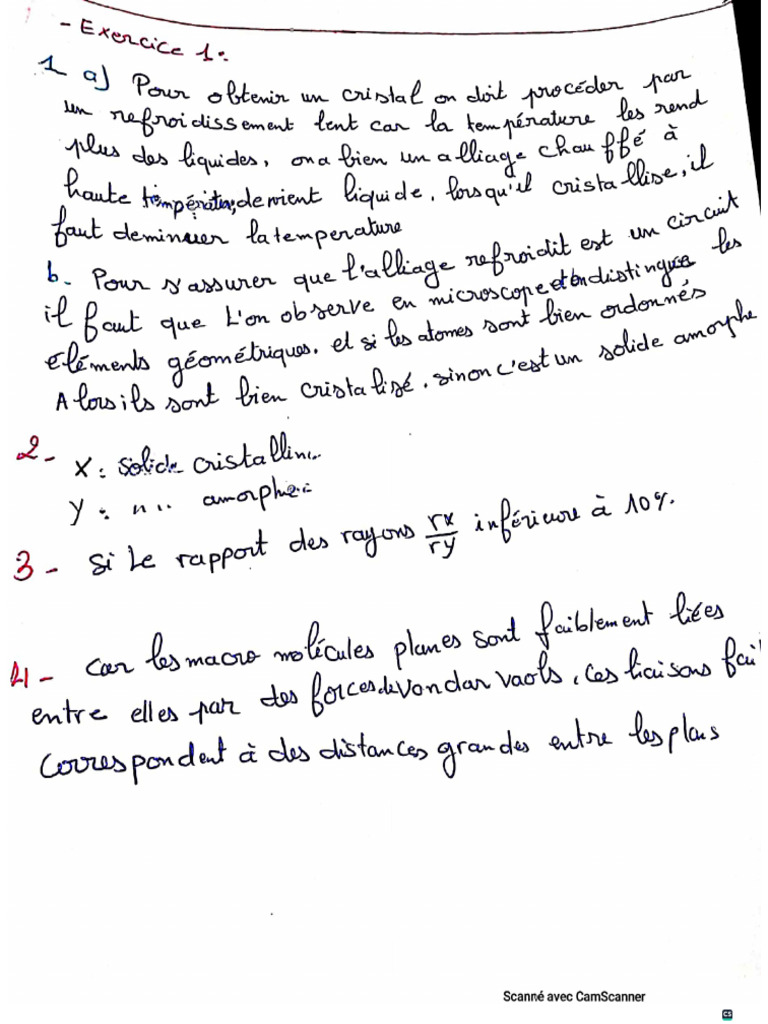 - Exercice 1:
1 a) Pour obtenir un cristal on doit procéder par
un refroidissement lent car la température les rend
plus des liquides, on a bien un alliage chauffé à
haute température, devient liquide. lorsqu'il cristallise, il
faut deminuer la temperature
b. Pour s'assurer que l'alliage refroidit est un circuit
il faut que L'on observe en microscope et on distingue les
eléments géométriques. et si les atomes sont bien ordonnés
Alors ils sont bien cristalisé. sinon c'est un solide amorphe
2- X: solide cristallin
Y: " amorphe
3- Si Le rapport des rayons rx/ry inférieure à 10%.
4- Car les macro molécules planes sont faiblement liées
entre elles par des forces de Vondar vaols, ces liaisons fai
Correspondent à des distances grandes entre les plans
Scanné avec CamScanner
CS